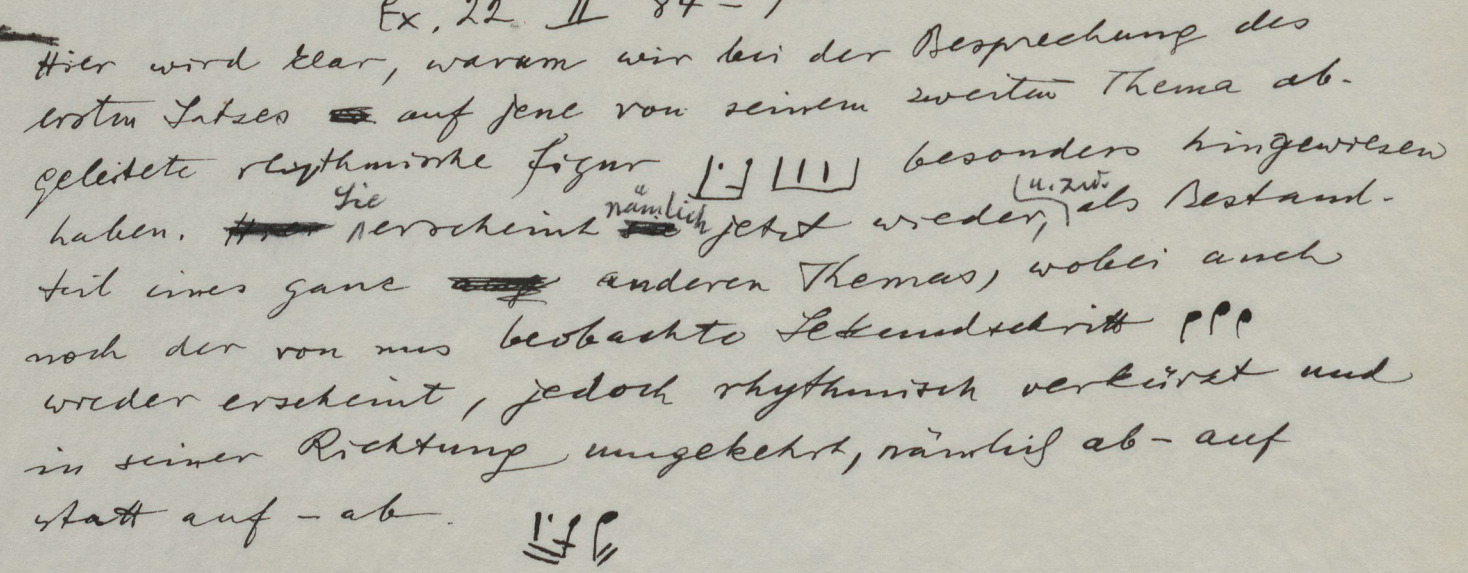 Ex. 22. II 84 –
Hier wird klar, warum wir bei der Besprechung des
ersten Satzes auf jene von seinem zweiten Thema ab-
geleitete rhythmische Figur besonders hingewiesen
haben. Sie erscheint nämlich jetzt wieder, u. zw. als Bestand-
teil eines ganz anderen Themas, wobei auch
noch der von uns beobachte Sekundschritt
wieder erscheint, jedoch rhythmisch verkürzt und
in seiner Richtung umgekehrt, nämlich ab – auf
statt auf – ab.